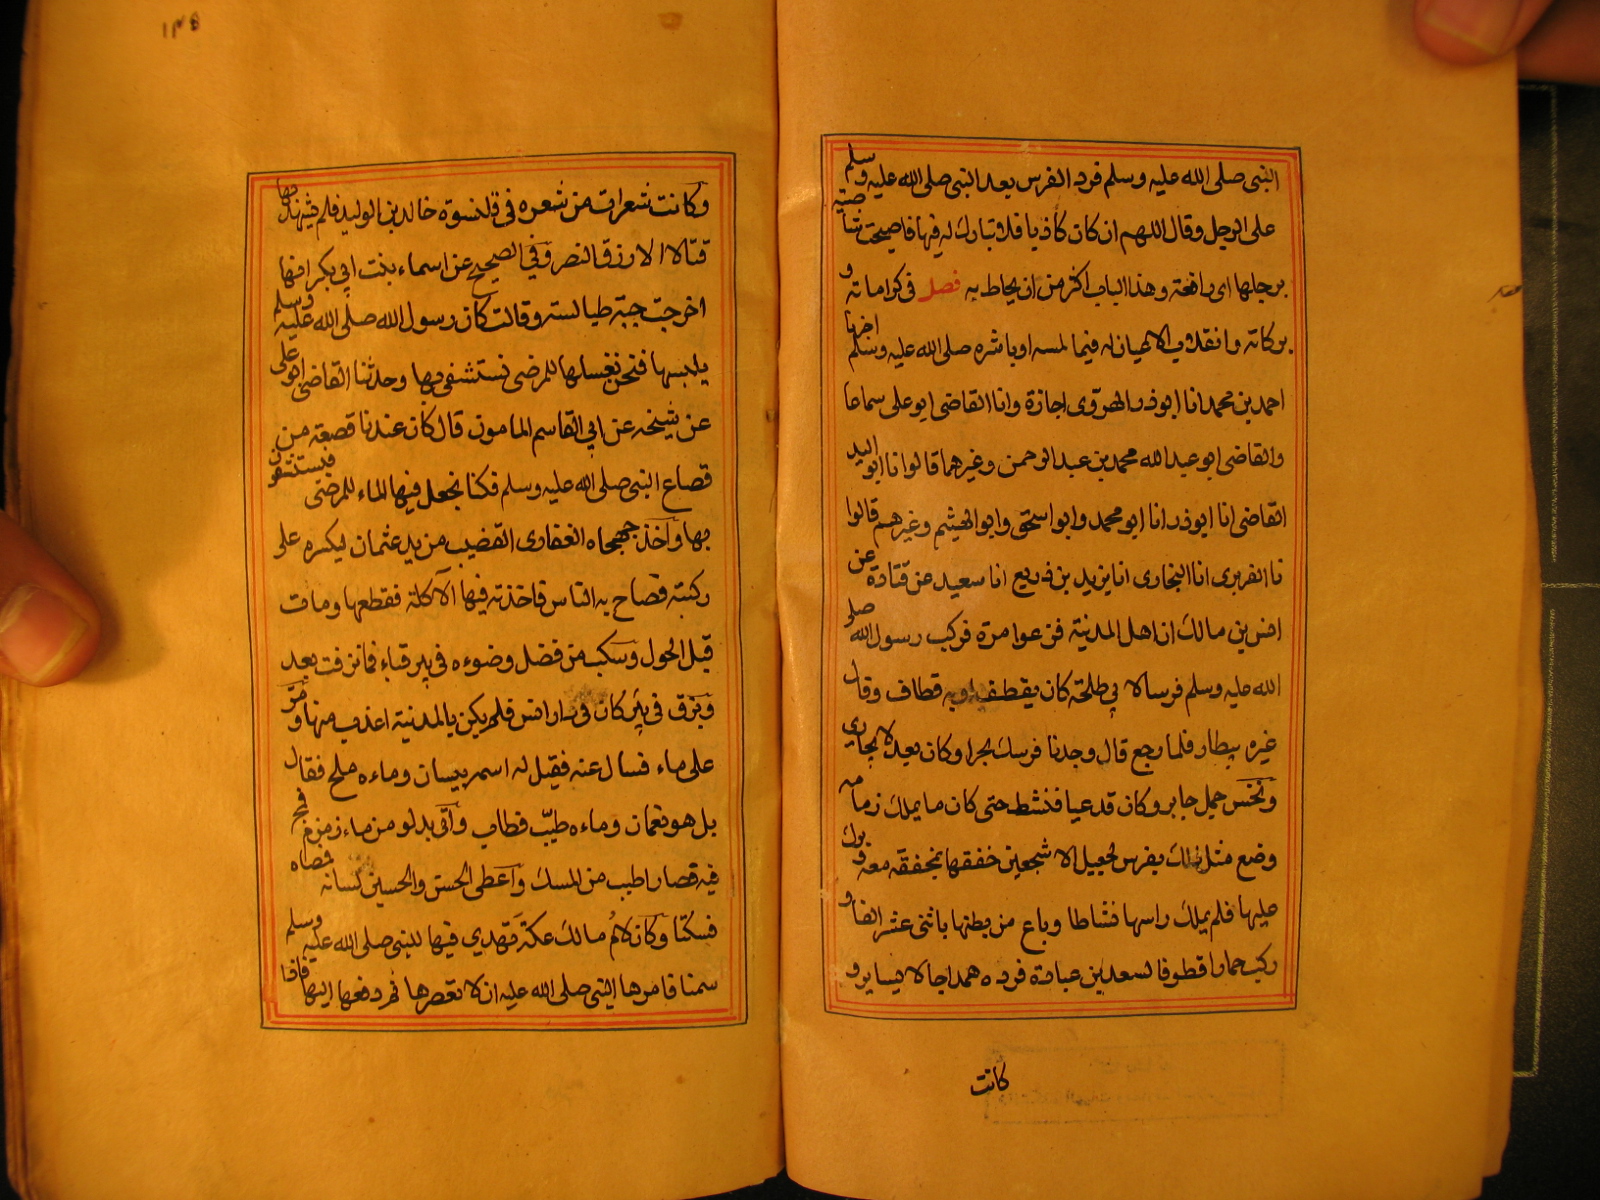 النبى صلى الله عليه وسلم فرد الفرس بعد النبى صلى الله عليه وسلم
على الرجل وقال اللهم ان كان كاذبا فلا تبارك له فيها فاصبحت شاصية
برجلها اى رافعة وهذا الباب اكثر من ان يحاط به فصل فى كراماته و
بركاته وانقلاب الاعيان له فيما لمسه او باشره صلى الله عليه وسلم اخبرنا
احمد بن محمد انا ابوذر الهروى اجازة وانا القاضى ابو على سماعا
والقاضى ابو عبد الله محمد بن عبد الرحمن وغيرهما قالوا نا ابو الوليد
القاضى انا ابوذر انا ابو محمد وابو اسحق وابو الهيثم وغيرهم قالوا
نا الفربرى انا البخارى انا يزيد بن زريع انا سعيد عن قتادة عن
انس بن مالك ان اهل المدينة فزعوا مرة فركب رسول الله صلى
الله عليه وسلم فرسا لابى طلحة كان يقطف او به قطاف وقال
غيره يبطا فلما رجع قال وجدنا فرسك بحرا وكان بعد لا يجارى
ونخس جمل جابر وكان قد عيا فنشط حتى كان ما يملك زمامه
وضع مثل ذلك بفرس لجعيل الاشجعى خفقها بمخفقة معه وبرك
عليها فلم يملك راسها نشاطا وباع من بطنها باثنى عشر الفا و
ركب حمارا قطوفا لسعد بن عبادة فرده هملاجا لا يساير و
كانت
١٣٥
وكانت شعرات من شعره فى قلنسوة خالد بن الوليد فلم يشهد بها
قتالا الا رزق النصر وفى الصحيح عن اسماء بنت ابى بكر انها
اخرجت جبة طيالسة وقالت كان رسول الله صلى الله عليه وسلم
يلبسها فنحن نغسلها للمرضى نستشفى بها وحدثنا القاضى ابو على
عن شيخه عن ابى القاسم المامون قال كان عندنا قصعة من
قصاع النبى صلى الله عليه وسلم فكنا نجعل فيها الماء للمرضى فيستشفون
بها واخذ جهجاه الغفارى القضيب من يد عثمان ليكسره على
ركبته فصاح به الناس فاخذته فيها الآكلة فقطعها ومات
قبل الحول وسكب من فضل وضوءه فى بير قباء فما نزفت بعد
وبزق فى بير كان فى دار انس فلم يكن بالمدينة اعذب منها ومر
على ماء فسال عنه فقيل له اسمه بيسان وماءه ملح فقال
بل هو نعمان وماءه طيب فطاب وآتى بدلو من ماء زمزم فمج
فيه فصار اطيب من المسك واعطى الحسن والحسين لسانه فمصاه
فسكتا وكان لام مالك عكة تهدى فيها للنبى صلى الله عليه وسلم
سمنا فامرها النبى صلى الله عليه ان لا تعصرها ثم دفعها اليها فاذا